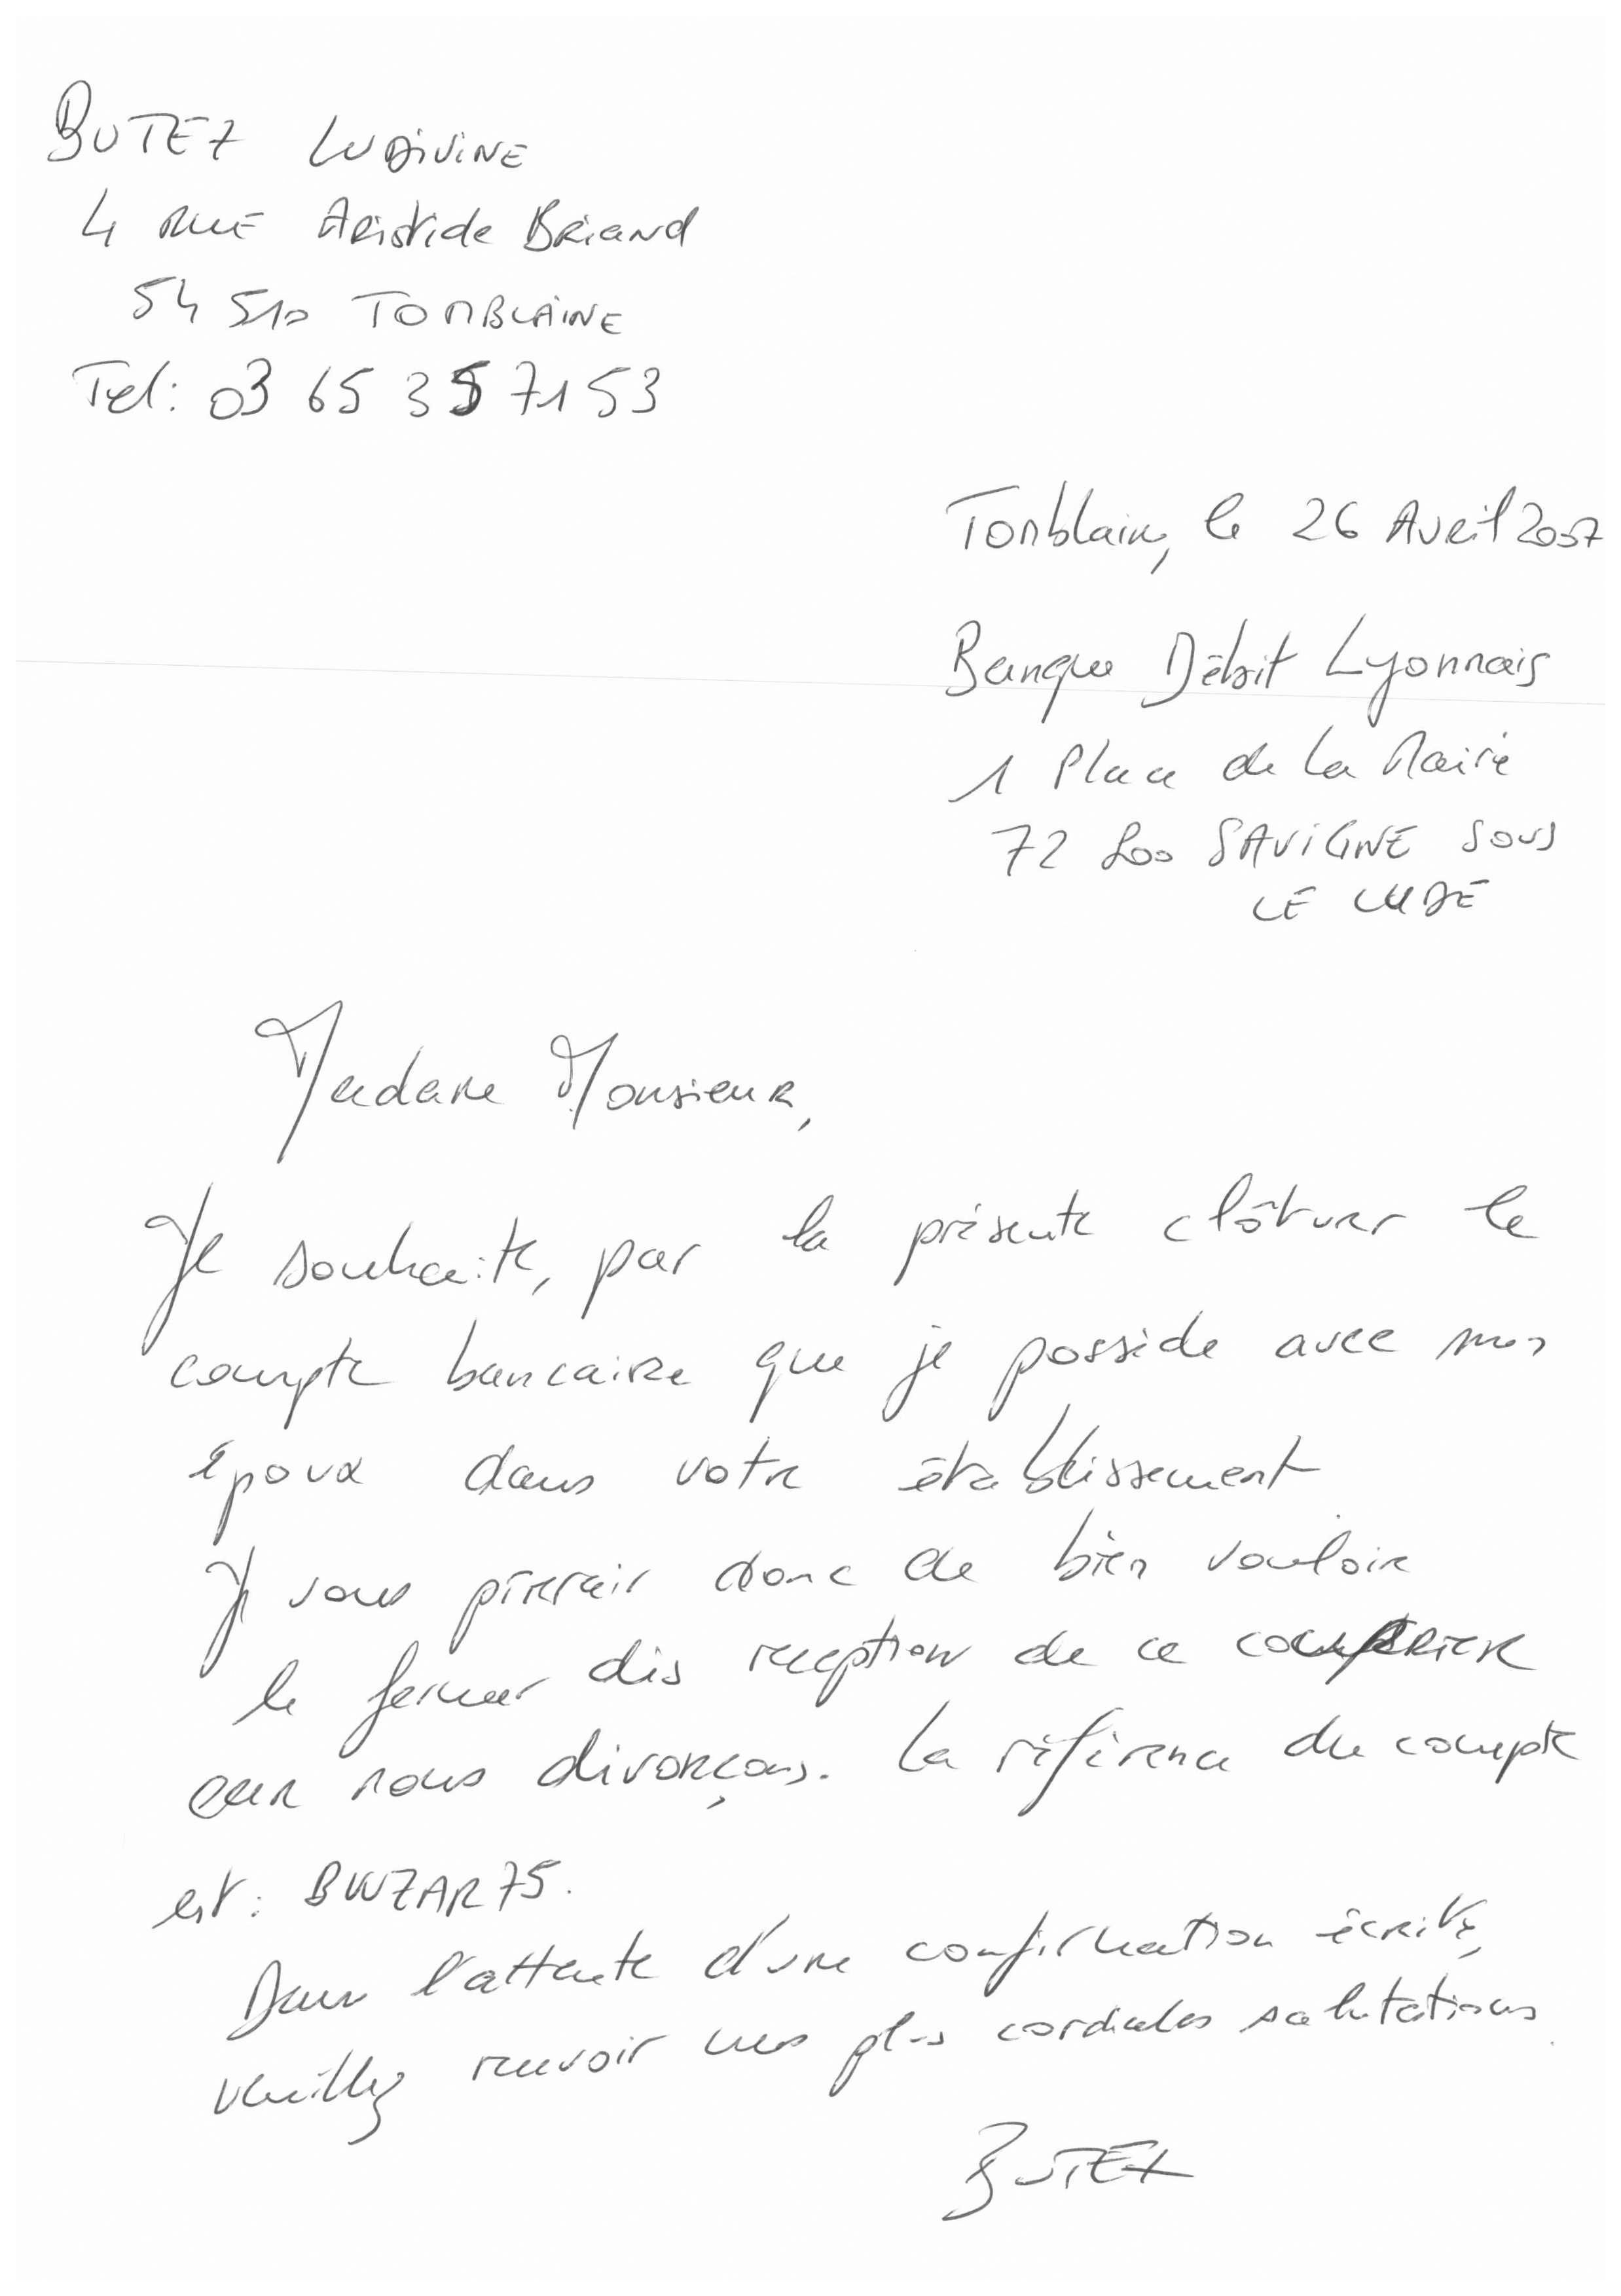 BUTEZ LUDIVINE
4 RUE Aristide Briand
54 510 TOMBLAINE
Tel: 03 65 35 71 53
Tomblaine, le 26 Avril 2007
Banque Débit Lyonnais
1 Place de la Mairie
72 800 SAVIGNE SOUS
LE LUDE
Madame Monsieur,
Je souhaite, par la présente clôturer le
compte bancaire que je possède avec mon
époux dans votre établissement.
Je vous prierais donc de bien vouloir
le fermer dès reception de ce courrier
car nous divorçons. La référence du compte
est : BWZAR75.
Dans l'attente d'une confirmation écrite,
veuillez recevoir mes plus cordiales salutations.
BUTEZ